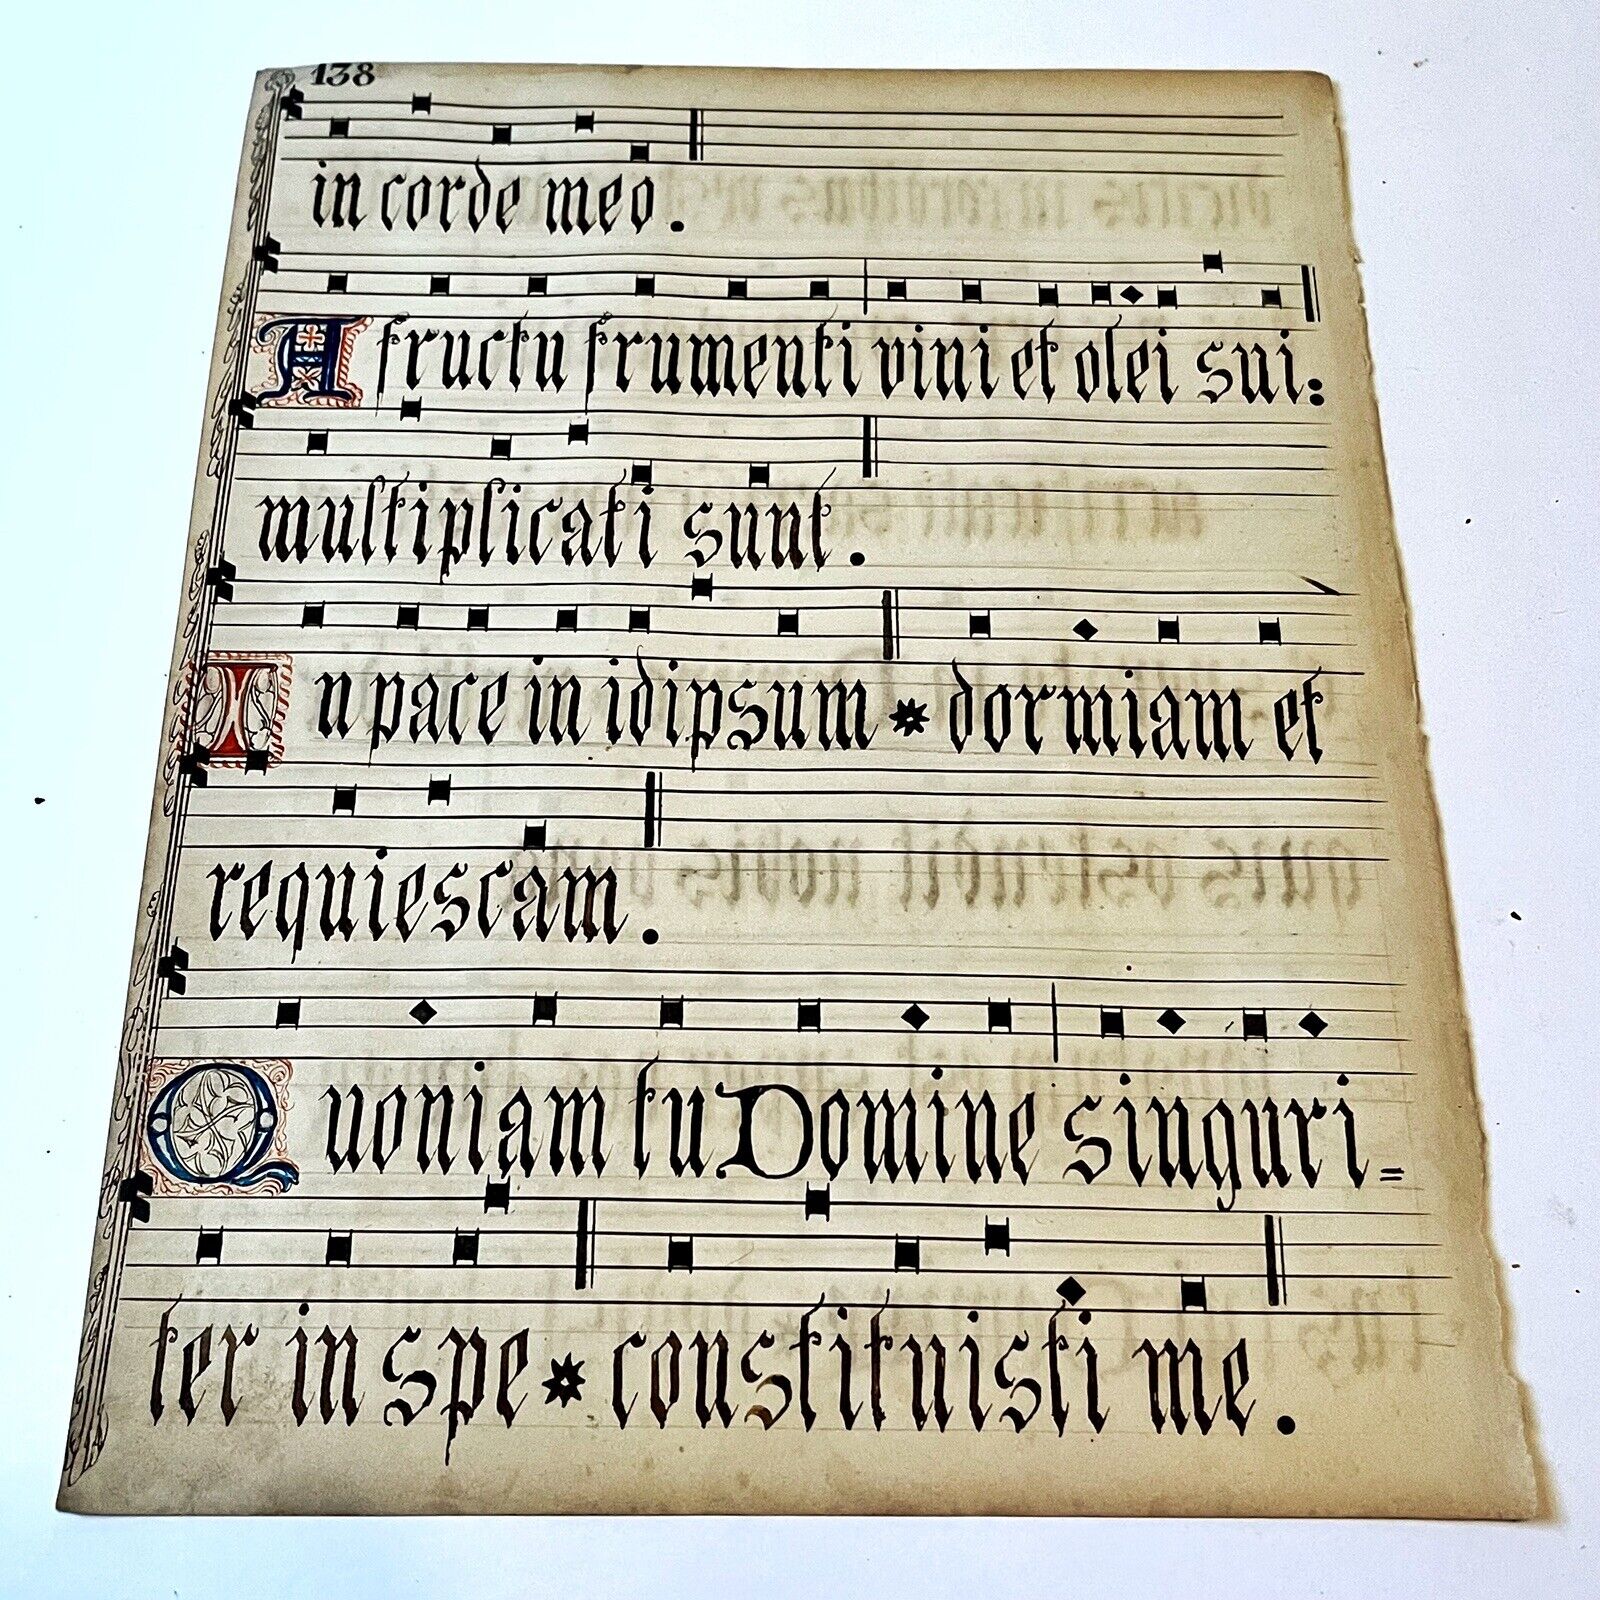 138
in corde meo.
A fructu frumenti vini et olei sui:
multiplicati sunt.
In pace in idipsum * dormiam et
requiescam.
Quoniam tu Domine singuri=
ter in spe * constituisti me.